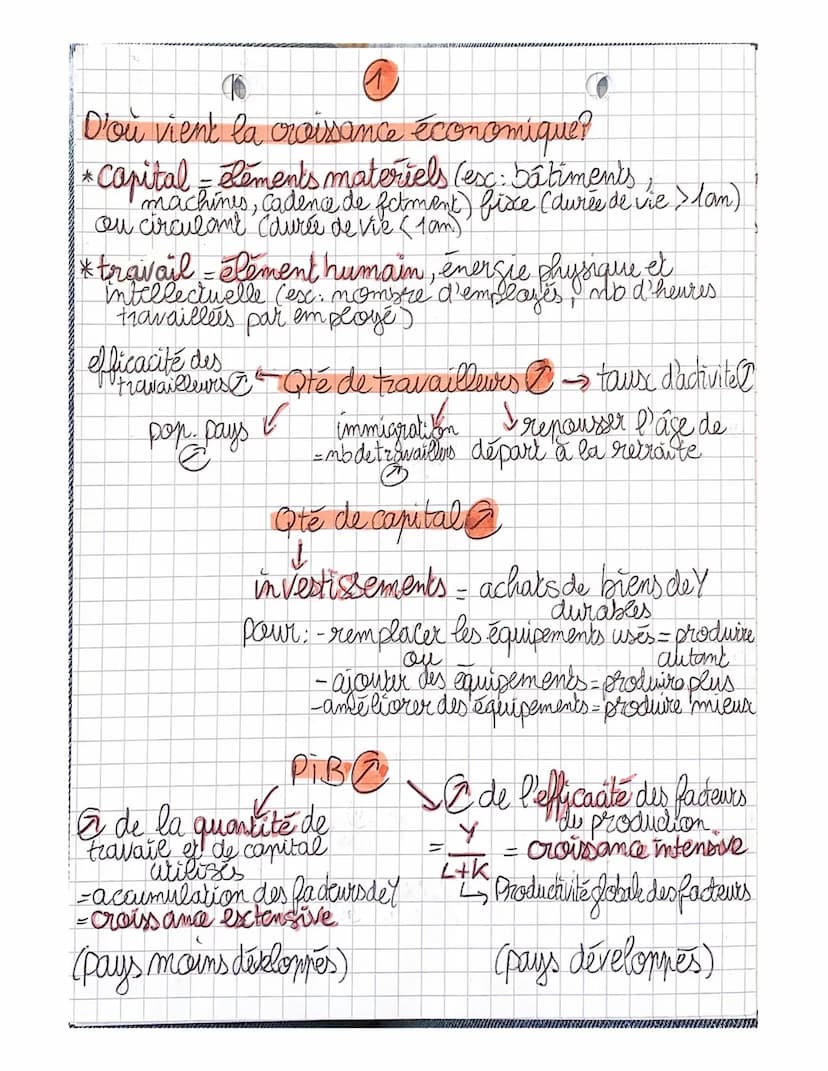 1
D'où vient la croissance économique?
*capital = éléments matériels (ex: bâtiments,
machines, cadence de fctment) fixe (durée de vie > 1an)
ou circulant (durée de vie < 1an)
*travail = élément humain, énergie physique et
intellectuelle (ex: nombre d'employés, nb d'heures
travaillées par employé)
efficacité des
travailleurs ↗ ← Qté de travailleurs ↗ → taux d'activité ↗
pop. pays ↗
immigration
= nb de travaillers ↗
repousser l'âge de
départ à la retraite
Qté de capital ↗
↓
investissements = achats de biens de Y
durables
pour: - remplacer les équipements usés = produire
autant
ou
- ajouter des équipements = produire plus
- améliorer des équipements = produire mieux
PiB ↗
↗ de la quantité de
travail et de capital
utilisés
= accumulation des facteurs de Y
= croissance extensive
(pays moins développés)
↗ de l'efficacité des facteurs
de production
= Y / L+K = croissance intensive
↳ Productivité globale des facteurs
(pays développés)